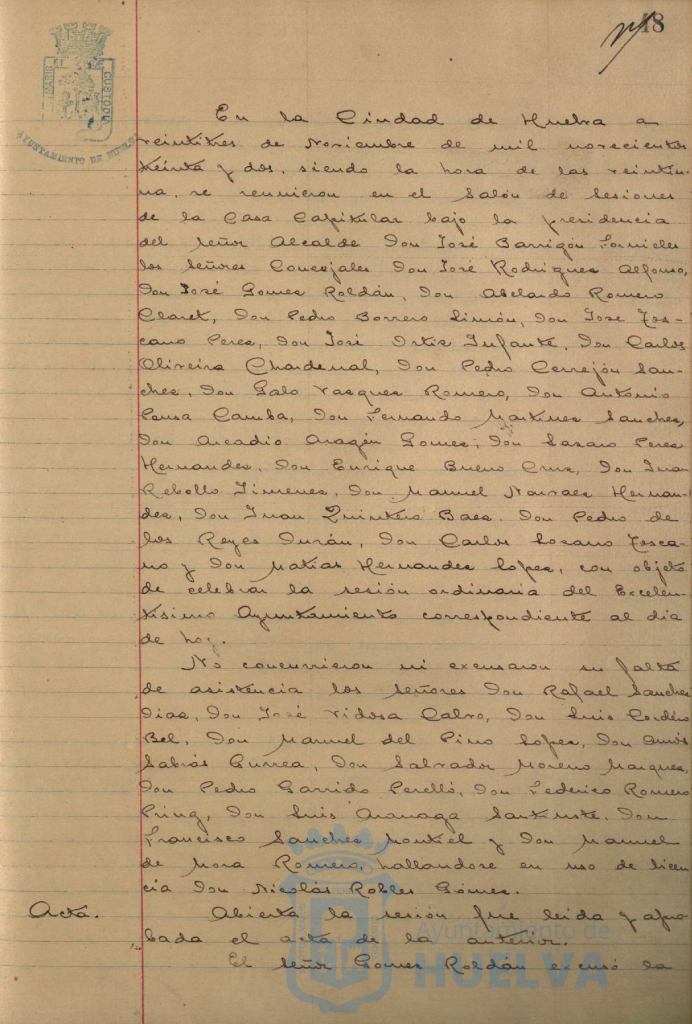 48
AYUNTAMIENTO DE HUELVA
En la Ciudad de Huelva a
veintitres de Noviembre de mil novecientos
treinta y dos, siendo la hora de las veintiu-
na, se reunieron en el Salón de Sesiones
de la Casa Capitular bajo la presidencia
del señor Alcalde Don José Barrigón Fornieles
los señores Concejales Don José Rodriguez Alfonso,
Don José Gomez Roldán, Don Abelardo Romero
Claret, Don Pedro Borrero Limón, Don José Tos-
cano Perez, Don José Ortiz Infante, Don Carlos
Oliveira Chardenal, Don Pedro Cerrejón San-
chez, Don Galo Vazquez Romero, Don Antonio
Pousa Camba, Don Fernando Martinez Sanchez,
Don Arcadio Aragón Gomez, Don Lazaro Perez
Hernandez, Don Enrique Bueno Cruz, Don Juan
Rebollo Jimenez, Don Manuel Narvaez Hernan-
dez, Don Juan Quintero Baez, Don Pedro de
los Reyes Durán, Don Carlos Lozano Tosca-
no y Don Matías Hernandez Lopez, con objeto
de celebrar la sesión ordinaria del Excelen-
tísimo Ayuntamiento correspondiente al dia
de hoy.
No concurrieron ni excusaron su falta
de asistencia los señores Don Rafael Sanchez
Diaz, Don José Vidosa Calvo, Don Luis Cordero
Bel, Don Manuel del Pino Lopez, Don Amós
Sabrás Gurrea, Don Salvador Moreno Marquez,
Don Pedro Garrido Perelló, Don Federico Romero
Pring, Don Luis Aranaga Santuste, Don
Francisco Sanchez Montiel y Don Manuel
de Mora Romero, hallandose en uso de licen
cia Don Nicolás Robles Gómez.
Acta. Abierta la sesión fue leida y apro
bada el acta de la anterior.
El señor Gomez Roldán excusó la
Ayuntamiento de
HUELVA